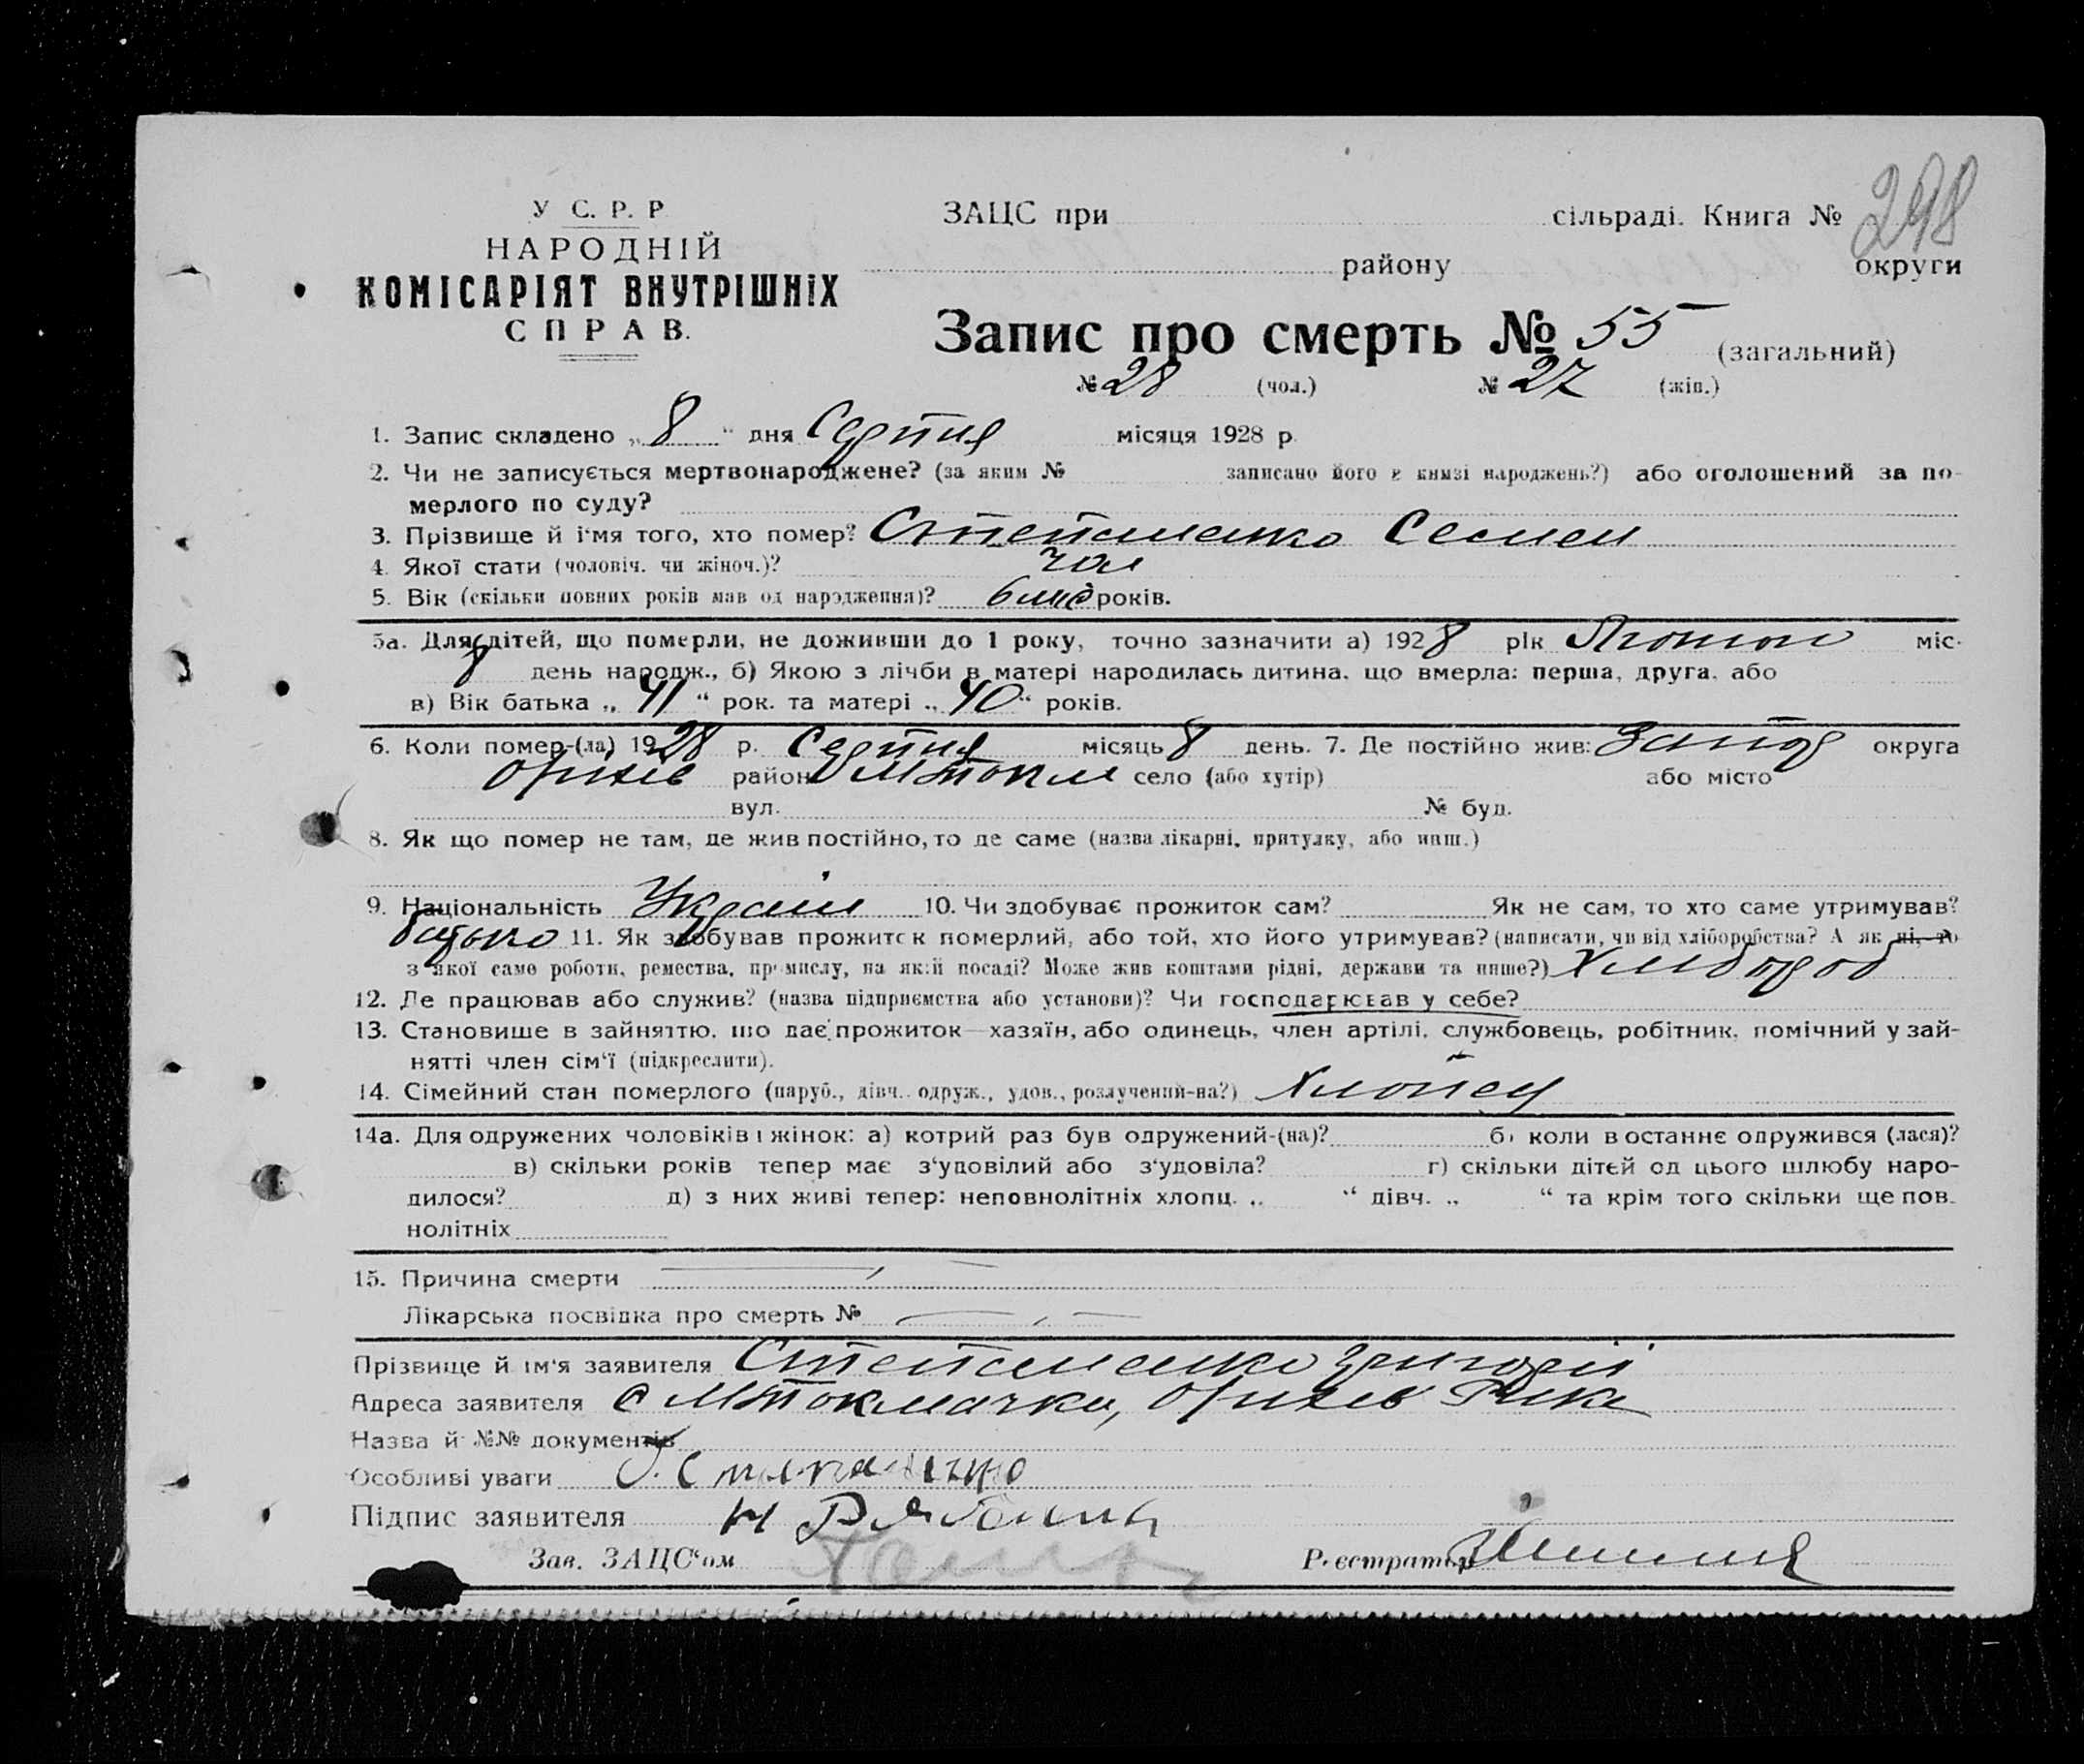 298
У С. Р. Р
НАРОДНІЙ
КОМІСАРІЯТ ВНУТРІШНІХ
СПРАВ.
ЗАЦС при сільраді. Книга №
району округи
Запис про смерть № 55 (загальний)
№ 28 (чол.) № 27 (жін.)
1. Запис складено „ 8 " дня Серпня місяця 1928 р.
2. Чи не записується мертвонароджене? (за яким № записано його в книзі народжень?) або оголошений за по-
мерлого по суду?
3. Прізвище й ім'я того, хто помер? Степаненко Семен
4. Якої стати (чоловіч. чи жіноч.)? чол
5. Вік (скільки повних років мав од народження)? 6 міс років.
5а. Для дітей, що померли, не доживши до 1 року, точно зазначити а) 1928 рік Лютого міс.
8 день народж., б) Якою з лічби в матері народилась дитина, що вмерла: перша, друга, або
в) Вік батька „ 41 " рок. та матері „ 40 " років.
6. Коли помер-(ла) 1928 р. Серпня місяць 8 день. 7. Де постійно жив: Запор округа
Оріхів район МТокм село (або хутір) або місто
вул. № буд.
8. Як що помер не там, де жив постійно, то де саме (назва лікарні, притулку, або инш.)
9. Національність Україн 10. Чи здобуває прожиток сам? Як не сам, то хто саме утримував?
батько 11. Як здобував прожиток померлий, або той, хто його утримував? (написати, чи від хліборобства? А як ні, то
з якої саме роботи, ремества, промислу, на якій посаді? Може жив коштами рідні, держави та инше?) Хлібороб
12. Де працював або служив? (назва підприємства або установи)? Чи господарював у себе?
13. Становище в зайняттю, що дає прожиток—хазяїн, або одинець, член артілі, службовець, робітник, помічний у зай-
нятті член сім'ї (підкреслити).
14. Сімейний стан померлого (паруб., дівч. одруж., удов., розлучений-на?) Хлопец
14а. Для одружених чоловіків і жінок: а) котрий раз був одружений-(на)? б) коли востаннє одружився (лася)?
в) скільки років тепер має з'удовілий або з'удовіла? г) скільки дітей од цього шлюбу наро-
дилося? д) з них живі тепер: неповнолітніх хлопц. „ " дівч. „ " та крім того скільки ще пов-
нолітніх
15. Причина смерти
Лікарська посвідка про смерть №
Прізвище й ім'я заявителя Степаненко Григорій
Адреса заявителя с МТокмачка, Оріхів Р-ка
Назва й №№ документів
Особливі уваги Г. Степаненко
Підпис заявителя
Зав. ЗАЦС'ом Реєстратор